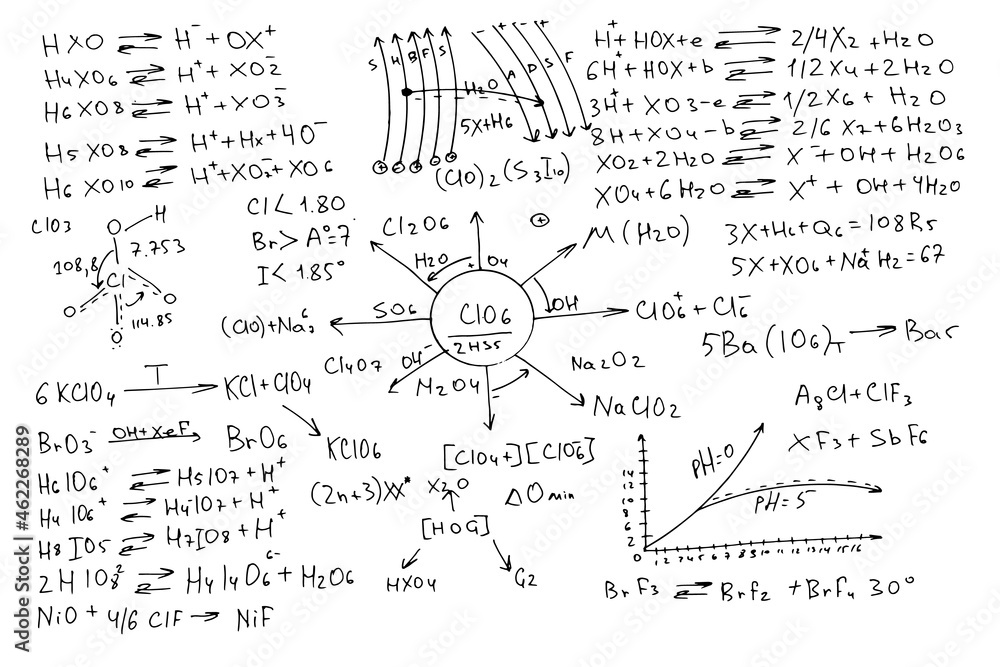 HXO ⇌ H⁻ + OX⁺
H4XO6 ⇌ H⁺ + XO2⁻
H6XO8 ⇌ H⁺ + XO3⁻
H5XO8 ⇌ H⁺ + Hx + 4O⁻
H6XO10 ⇌ H⁺ + XO2⁻ + XO6
S H B F S
A D S F
H2O
5X+H6
(ClO)2(S3I10)
H⁺ + HOX + e ⇌ 2/4X2 + H2O
6H⁺ + HOX + b ⇌ 1/2X4 + 2H2O
3H⁺ + XO3 - e ⇌ 1/2X6 + H2O
8H + XO4 - b ⇌ 2/6X2 + 6H2O3
XO2 + 2H2O ⇌ X⁻ + OH + H2O6
XO4 + 6H2O ⇌ X⁺ + OH + 4H2O
3X+H6+Q6=108R5
5X+XO6+Na⁺H2=67
ClO3
O H
7.753
108,8
Cl
O O
O
114.85
Cl < 1.80
Br > A°=7
I < 1.85°
Cl2O6
H2O
O4
M(H2O)
SO6
ClO6
2HS5
OH
ClO6⁺ + Cl⁻
(ClO)+Na3⁶
Cl4O7
O4⁻
M2O4
Na2O2
NaClO2
5Ba(IO6)T → Bar
6KClO4 T → KCl + ClO4
KClO6
BrO3⁻ OH+XeF → BrO6
H6IO6⁺ ⇌ H5IO7 + H⁺
H4IO6⁺ ⇌ H4IO7 + H⁺
H8IO5 ⇌ H7IO8 + H⁺
2HIO8² ⇌ H4I4O6⁶⁻ + H2O6
NiO + 4/6ClF → NiF
[ClO4+][ClO6⁻]
(2n+3)XX*
X2O
ΔO min
[HOG]
HXO4
G2
AgCl+ClF3
XF3+SbF6
PH=0
PH=5
14
12
10
8
6
2
0 1 2 4 5 6 7 8 9 10 11 12 13 14 15 16
BrF3 ⇌ BrF2 + BrF4 30°